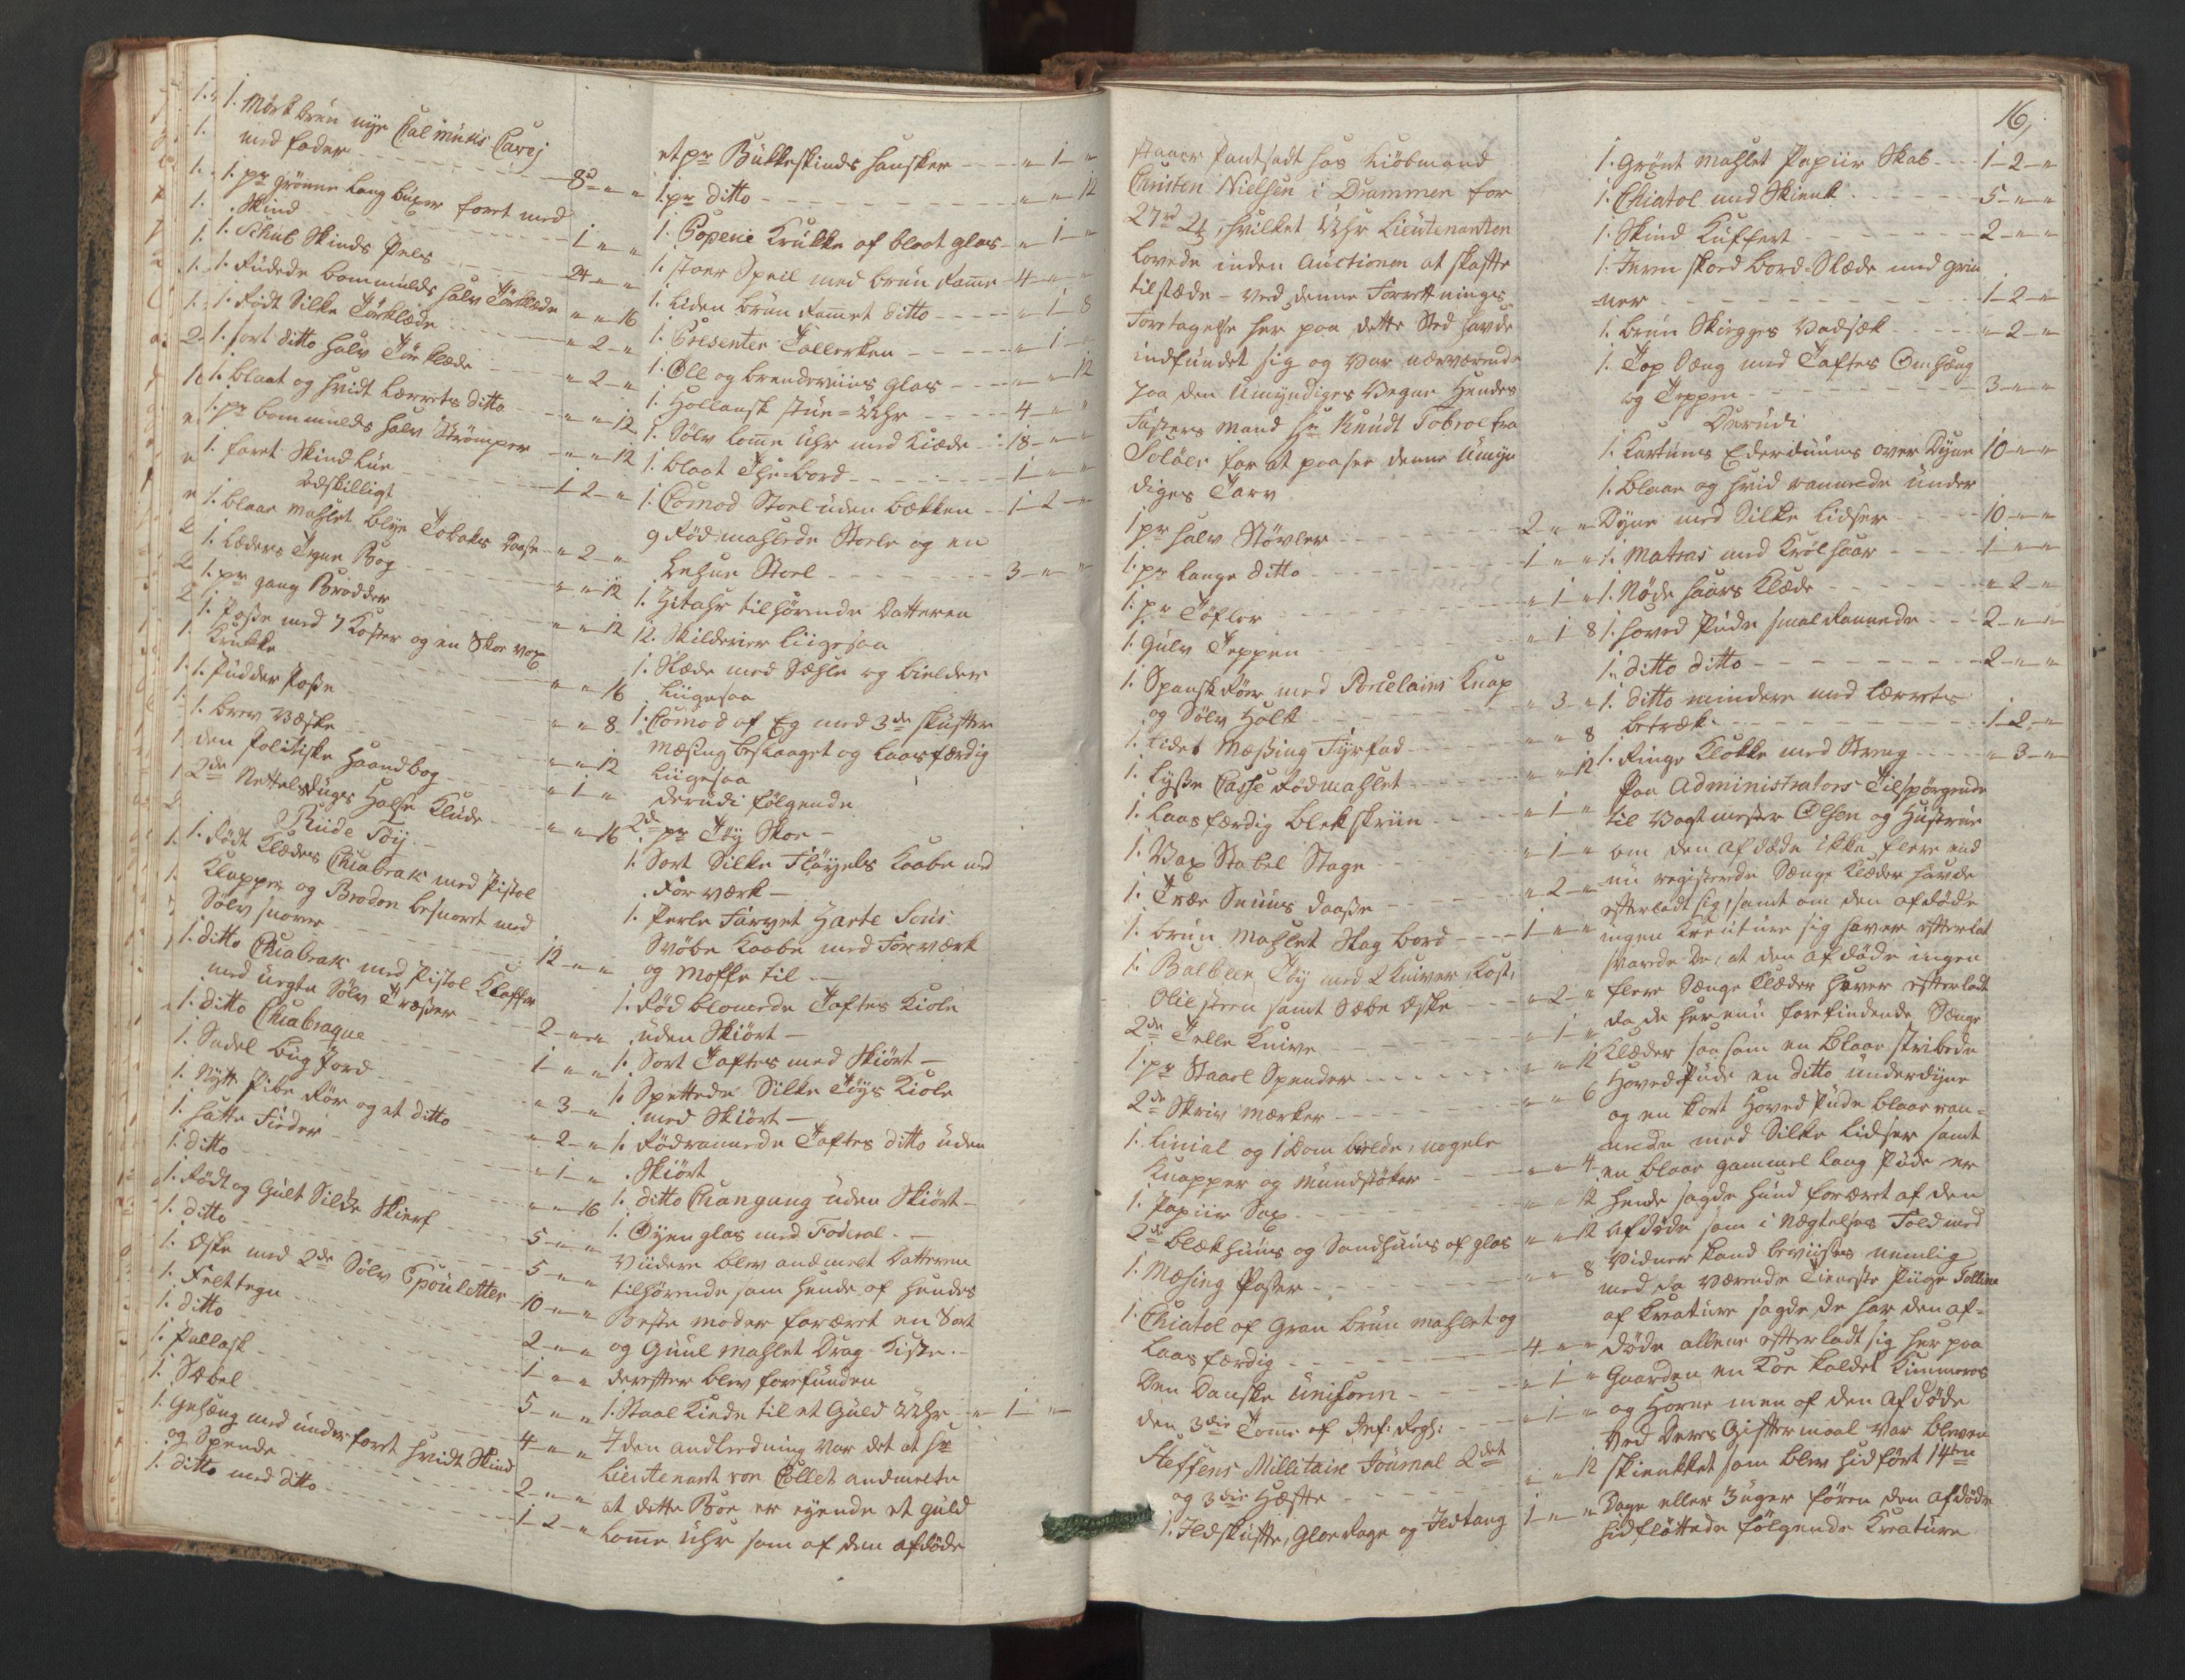 1. Mørk brun nye Calmuks Cavej
med foder - 8rd " "
1. pr grønne lang buxer foret med
Skind - 1 " "
1. Schub Skinds Pels - 24 " "
1. Rudede bommulds halv Tørklæde " " 16
1. Rødt Silke Tørklæde - " 2 "
1. sort ditto halv Tørklæde - " 2 "
1. blaat og hvidt Lærrets ditto - " " 12
1. pr bommulds halv Strømper - " " 12
1. foret Skind lue - 1 2 "
Adskilligt
1. blaae mahlet blye Tobaks Daase - " 2 "
1. Læders Tegne Bog - " " 12
1. pr gang Brodder - " " 12
1. Poße med 7 Koster og en Skoe vox
Krukke - " " 16
1. Pudder Poße - " " 8
1. brev Væske - " " 12
den Politiske Haandbog - " 1 "
2de Nettelduges Halse Klude - " " 16
Riide Tøij
1. Rødt Klædes Chiabrak med Pistol
Kapper og Brodon besnoret med
Sølv snorer - 12 " "
1. ditto Chiabrak med Pistol Kapper
med uegte Sølv Træßer - 2 " "
1. ditto Chiabraque - 1 " "
1. Sadel bug Jord - " 3 "
1. Nytt Pibe Rør og et ditto - " 2 "
1. hatte Fieder - " 1 "
1. ditto - " " 16
1. Rødt og Guldt Silke Skierf - 5 " "
1. ditto - 5 " "
1. Æske med 2de Sølv Epouletter - 10 " "
1. Felttegn - 2 " "
1. ditto - 1 " "
1. Pallask - 5 " "
1. Sabel - 4 " "
1. Gehæng med under foret hvidt Skind
og Spende - 2 " "
1. ditto med ditto - 1 2 "
et pr Bukkeskinds hansker - " 1 "
1. pr ditto - " " 12
1. Poperie Krukke af blaat glas - " 1 "
1. stoer Speil med brun Ramme - 4 " "
1. Liden brun Rammet ditto - " 1 8
1. Presenter Tallerken - " 1 "
1. Øll og brendeviins glas - " " 12
1. Hollansk stue-Uhr - 4 " "
1. Sølv Lomme Uhr med Kiæde - 18 " "
1. blaat The-bord - 1 " "
1. Comod Stoel uden bækken - 1 2 "
9 Rød mahlede Stoele og en
Lehne Stoel - 3 " "
1. Zitahr tilhørende Datteren
12. Skilderier liigesaa
1. Slæde med Sæhle og bielder
liigesaa
1. Comod af Eg med 3de skuffer
Mæsing beslaaget og laasfærdig
liigesaa
Derudi følgende
2de pr Tøy Skoe -
1. Sort Silke Fløyels Kaabe med
Forværk -
1. Perle Farvet Harte Sous
Svøbe Kaabe med Forværk
og Moffe til -
1. Rød blomede Taftes Kiole
uden Skiørt -
1. Sort Taftes med Skiørt -
1. Spettede Silke Tøys Kiole
med Skiørt -
1. Rødrannede Taftes ditto uden
Skiørt
1. ditto Changang uden Skiørt -
1. Øyen glas med Foderal -
Viidere blev andmelt Datteren
tilhørende som hende af hendes
Beste moder foræret en Sort
og Guul mahlet Drag Kiste. -
Derefter blev forefunden
1. Staal Kiede til et Guld Uhr - " 1 "
I den andledning var det at Hr
Lieutenant von Collet andmelte
at dette Boe er eyende et guld
Lomme Uhr som af den afdøde
16,
staaer Pantsadt hos Kiøbmand
Christen Nielsen i Drammen for
27rd 2 , hvilket Uhr Lieutenanten
lovede inden Auctionen at skaffe
tilstæde - ved denne Forretninges
Foretagelse her paa dette Sted havde
indfundet sig og var nærværende
paa den Umyndiges Vegne Hendes
Fasters Mand Hr Knudt Tobroe fra
Soløer for at paasee denne Umyn
diges Tarv
1 pr halv Støvler - 2 " "
1. pr lange ditto - 1 " "
1. pr Tøfler - " 1 "
1. Gulv Teppen - " 1 8
1. Spansk Rør med Porcelains Knap
og Sølv Holk - " 3 "
1. lidet Mæßing Fyrfad - " " 8
1. Lyße Casse Rødmahlet - " " 12
1. Laasfærdig blekskriin - " 1 "
1. Vax Stabel Stage - " 1 "
1. Træe Snuus Daaße - " 2 "
1. brun Mahlet Slag bord - 1 " "
1. Balbeer Tøy med 2 Kniver, Kost,
Olie steen samt Sæbe Æske - " 2 "
2de Telle Knive - " 1 "
1. pr Staael Spender - " " 12
2de Skriv mærker - " " 6
1. Linial og 1 Dom bræde, nogele
Knapper og Mundstøker - " " 4
1. Papiir Sax - " " 12
2de Blækhuus og Sandhuus af glas " " 12
1. Mæsing Paßer - " " 8
1. Chiatol af Gran brun mahlet og
Laasfærdig - 4 " "
Den Danske Uniform - " 1 "
den 3die Tome af Inf: Regl: - " 1 "
Steffens Millitaire Journal 2det
og 3die Hæfte - " " 12
1. Ildskuffe, Gloe Rage og Ildtang 1 " "
1. Grønt mahlet Papiir Skab - 1 2 "
1. Chiatol med Skienk - 5 " "
1. Skind Kuffert - 2 " "
1. Jern skoed bord Slæde med grin
ner - 1 2 "
1. brun Skirgges Vadsæk - " 2 "
1. Top Sæng med Taftes Omhæng
og Teppen - 3 " "
Derudi
1. Kartuns Ederduuns over Dyne 10 " "
1. blaae og hvid rannede under
Dyne med Silke Lidser - 10 " "
1. Matras med Krølhaar - 1 " "
1. Nøde haars Klæde - " 2 "
1. hoved Pude smal Rannede - 2 " "
1. ditto ditto - 2 " "
1. ditto mindere med Lærrets
betræk - 1 2 "
1. Ringe Klokke med Streng - " 3 "
Paa Administrators Tilspørgende
til Vagtmester Olsen og Hustrue
om den afdøde ikke flere end
nu registerede Sænge Klæder havde
efterladt sig, samt om den afdøde
ingen Kreature sig haver efterlat
svarede De, at den afdøde ingen
flere Sænge Klæder haver efterladt
da de her enu forefindende Sænge
Klæder saasom en blaae stribede
Hoved Pude en ditto underdyne
og en kort Hoved Pude blaae ran-
nede med Silke Lidser samt
en blaae gammel lang Pude er
hende sagde hund foræret af den
afdøde som i Nægtelses Fald med
Vidner kand beviises nemlig
med da værende Tieneste Piige Belline
af Kreature sagde de har den af-
døde allene efterladt sig her paa
Gaarden en Koe kaldet Kummeros
og Horne men af den afdøde
ved Deres Giftermaal var bleven
skienkket som blev hidført 14ten
Dage eller 3 uger føren den afdøde
hidfløttede følgende Kreature